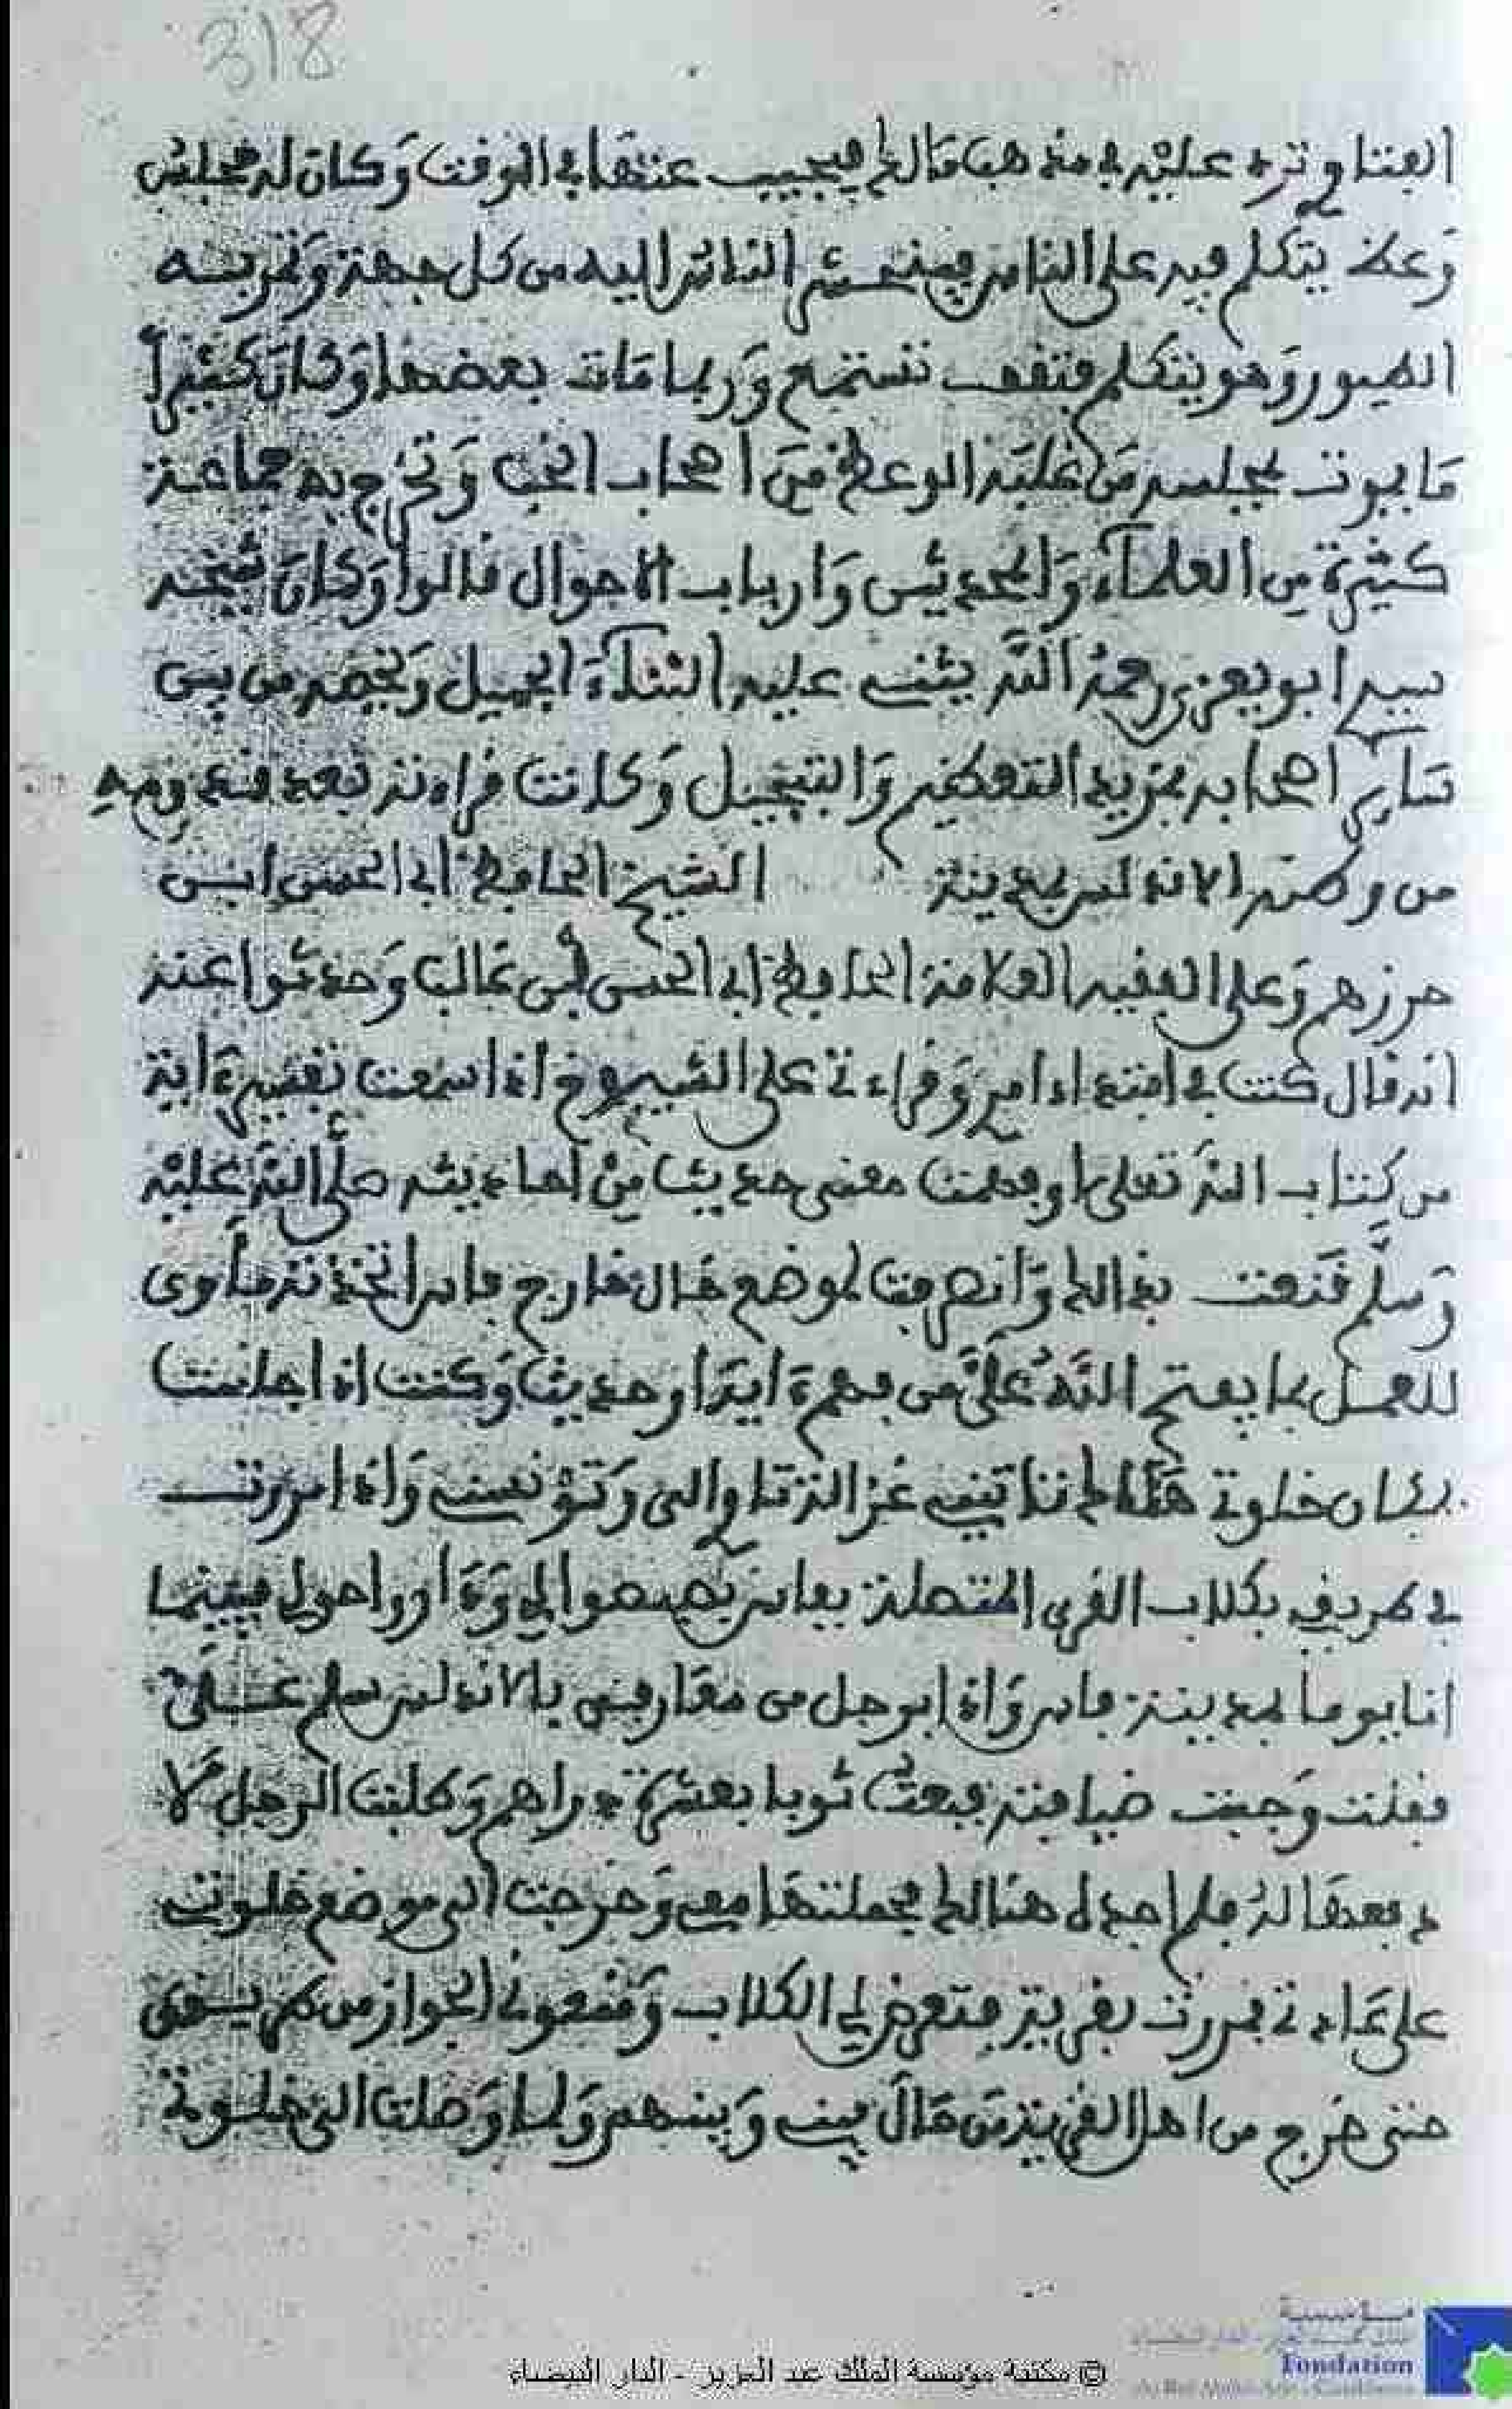 318
الفتاوي ترد عليه في مذهب مالك فيجيب عنها في الوقت وكان له مجلس
وعظ يتكلم فيه على الناس الناس اليه من كل جهة وتمر به
الطيور وهو يتكلم فتقف تستمع وربما مات بعضها وكان كثيرا
ما يموت بمجلسه من غلبه الوعظ من اصحاب الحب وتخرج به جماعة
كثيرة من العلماء والمحدثين وارباب الاحوال قالوا وكان شيخه
سيد ابو يعزى رحمه الله يثني عليه الثناء الجميل ويخصه من بين
سائر اصحابه بمزيد التعظيم والتبجيل وكانت قراءته بعد قدومه
من وطنه الاندلس بمدينة الشيخ الحافظ ابي الحسن ابن
حرزهم وعلى الفقيه العلامة الحافظ ابي الحسن ابن غالب وحدثوا عنه
انه قال كنت في ابتداء امري وقراءتي على الشيوخ اذا سمعت تفسير ءاية
من كتاب الله تعلى او فهمت معنى حديث من احاديثه صلى الله عليه
وسلم قنعت بذالك وانصرفت لموضع خال خارج فاس اتخذته مأوى
للعمل بما يفتح الله علي من فهم ءاية او حديث وكنت اذا جلست
بمكان خلوتي هنالك تاتيني غزالة تاوي الي وتؤنسني واذا مررت
في طريقي بكلاب القرى المتصلة بفاس بصبصوا لي وداروا حولي فبينما
انا يوما بمدينة فاس واذا برجل من معارفي بالاندلس سلم علي
فقلت وجبت ضيافته فبعت ثوبا بعشرة دراهم وطلبت الرجل لا
دفعها له فلم اجده هنالك فحملتها معي وخرجت الى موضع خلوتي
على عادتي فمررت بقريتي فتعرض لي الكلاب ومنعوني الجواز من طريقي
حتى خرج من اهل القرية من حال بيني وبينهم ولما وصلت الى خلوتي
© مكتبة مؤسسة الملك عبد العزيز - الدار البيضاء
مؤسسة
Fondation